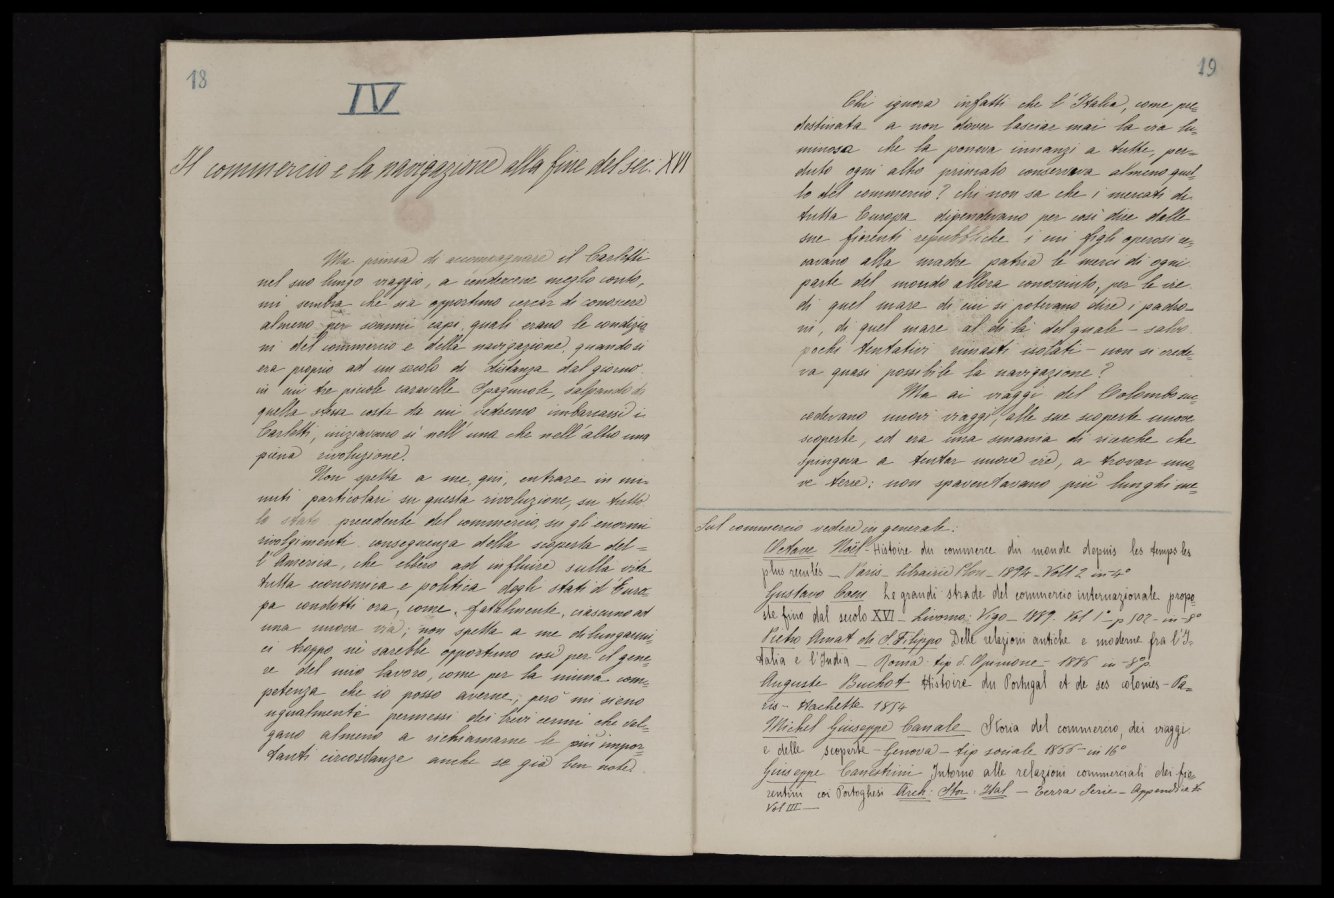 18
IV
Il commercio e la navigazione alla fine del sec. XVI
Ma prima di accompagnare il Carletti
nel suo lungo viaggio, a rendercene meglio conto,
mi sembra che sia opportuno cercar di conoscere
almeno per sommi capi quali erano le condizio
ni del commercio e della navigazione, quando si
era proprio ad un secolo di distanza dal giorno
in cui tre piccole caravelle Spagnuole, salpando di
quella stessa costa da cui vedremo imbarcarsi i
Carletti, iniziavano sì nell' una che nell' altro una
piena rivoluzione.
Non spetta a me, qui, entrare in mi-
nuti particolari su questa rivoluzione, su tutto
lo stato precedente del commercio, su gli enormi
rivolgimenti conseguenza della scoperta del=
l'America, che ebbero ad influire sulla vita
tutta economica e politica degli stati d'Euro-
pa condotti ora, come, fatalmente, ciascuno ad
una nuova via; non spetta a me dilungarmi
ci troppo, nè sarebbe opportuno così per il gene=
re del mio lavoro, come per la minima com=
petenza che io posso averne; però mi sieno
ugualmente permessi dei brevi cenni che val=
gano almeno a richiamarne le più impor=
tanti circostanze anche se già ben note.
19
Chi ignora infatti che l'Italia, come pre=
destinata a non dover lasciar mai la via lu=
minosa che la poneva innanzi a tutte, per=
duto ogni altro primato conservava almeno quel=
lo del commercio? chi non sa che i mercati di
tutta Europa dipendevano per così dire dalle
sue fiorenti repubbliche i cui figli operosi re=
cavano alla madre patria le merci di ogni
parte del mondo allora conosciuto, per le vie
di quel mare di cui si potevano dire i padro=
ni, di quel mare al di là del quale - salvo
pochi tentativi rimasti isolati - non si crede=
va quasi possibile la navigazione?
Ma ai viaggi del Colombo suc=
cedevano nuovi viaggi, alle sue scoperte nuove
scoperte, ed era una smania di ricerche che
spingeva a tentar nuove vie, a trovar nuo=
ve terre: non spaventavano più i lunghi me=
Sul commercio vedere in generale:
Octave Noël - Histoire du commerce du monde depuis les temps les
plus reculés - Paris - librairie Plon - 1894 - Voll 2 in-4°
Gustavo Coen Le grandi strade del commercio internazionale propo=
ste fino dal secolo XVI - Livorno: Vigo - 1889. Vol 1° - p 502 - in-8°
Pietro Amat di S. Filippo Delle relazioni antiche e moderne fra l'I=
talia e l'India - Roma - tip. d. Opinione - 1886 in-8°
Auguste Buchot Histoire du Portugal et de ses colonies - Pa=
ris - Hachette 1854
Michel Giuseppe Canale Storia del commercio, dei viaggi
e delle scoperte - Genova - tip sociale 1866 - in 16°
Giuseppe Canestrini Intorno alle relazioni commerciali dei fio=
rentini coi Portoghesi Arch: Stor: Ital - Terza Serie - Appendice to
Vol III -